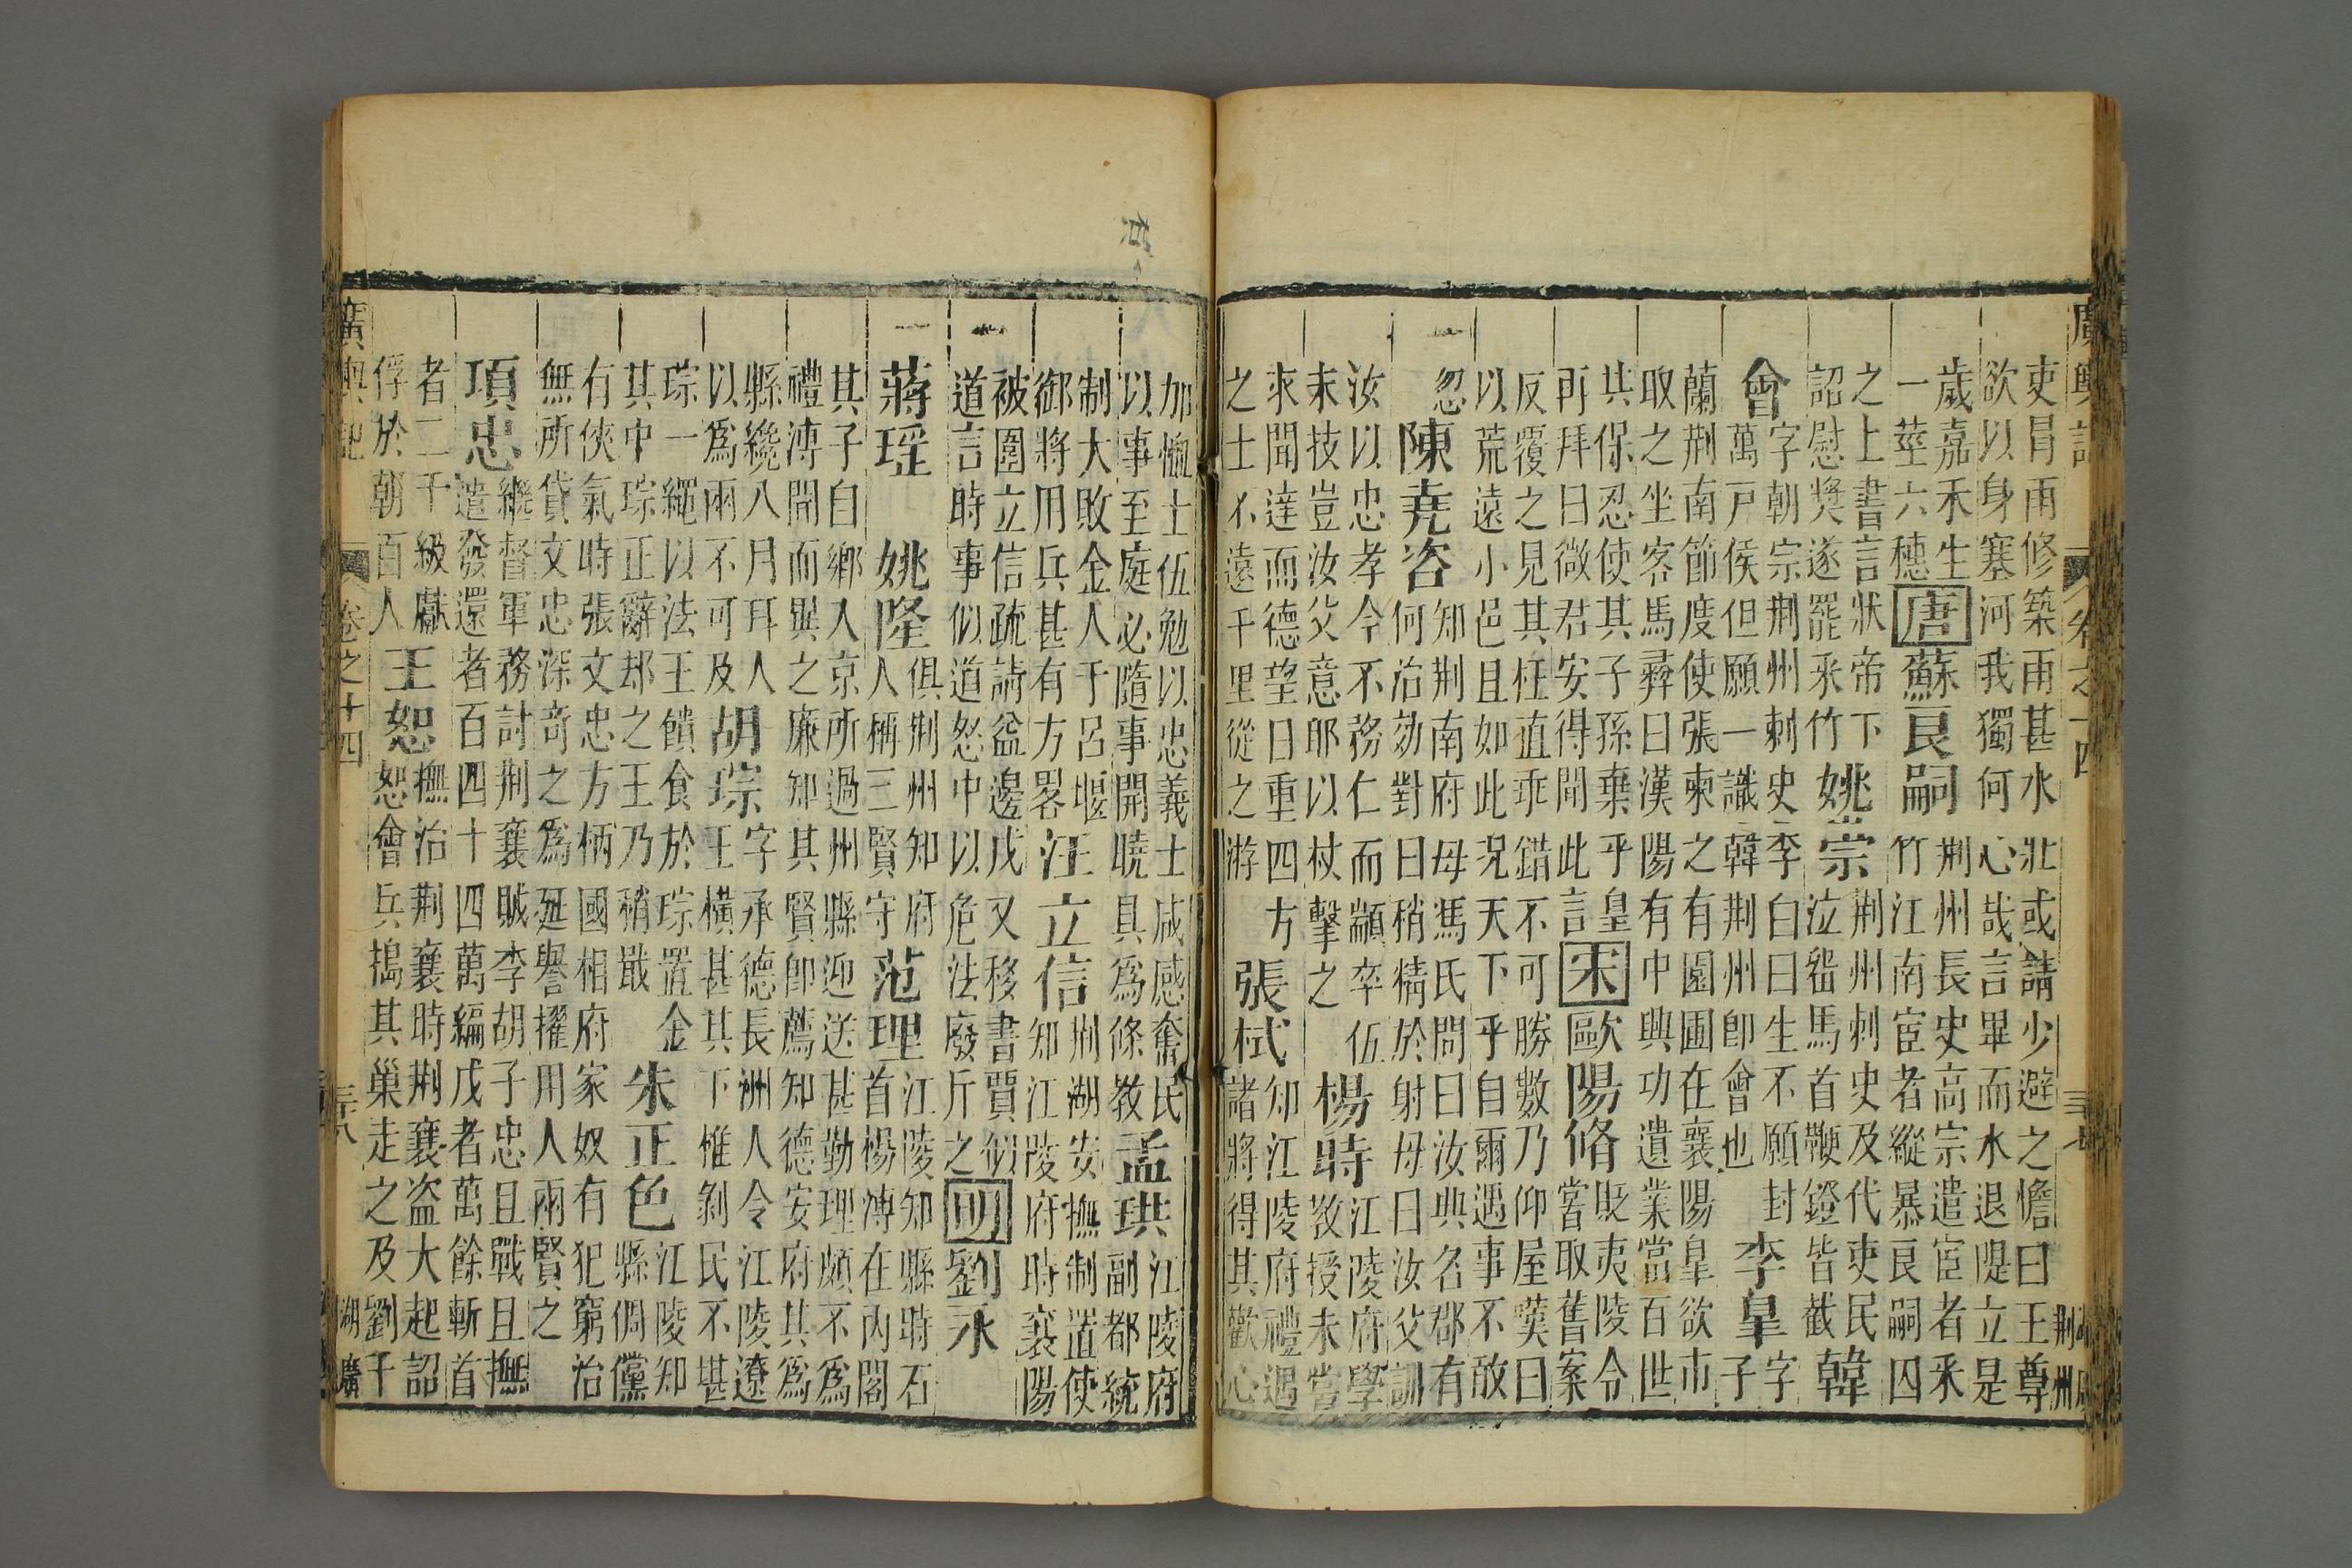 廣輿記 卷之十四 三十七 荊州
吏冒雨修築雨甚水壯或請少避之憺曰王尊
欲以身塞河我獨何心哉言畢而水退隄立是
歲嘉禾生
一莖六穗
唐
蘇良嗣
荊州長史高宗遣宦者釆
竹江南宦者縱暴良嗣囚
之上書言狀帝下
詔慰獎遂罷釆竹
姚崇
荊州刺史及代吏民
泣留馬首鞭鐙皆截
韓
會
字朝宗荊州刺史李白曰生不願封
萬戸侯但願一識韓荊州卽會也
李皐
字
子
蘭荊南節度使張柬之有園圃在襄陽皐欲市
取之坐客馬彞曰漢陽有中興功遺業當百世
共保忍使其子孫棄乎皇
再拜曰微君安得聞此言
宋
歐陽脩
既夷陵令
嘗取舊案
反覆之見其枉直乖錯不可勝數乃仰屋嘆曰
以荒遠小邑且如此况天下乎自爾遇事不敢
忽
陳堯咨
知荊南府母馮氏問曰汝典名郡有
何治効對曰稍精於射母曰汝父訓
汝以忠孝今不務仁而顓卒伍
末技豈汝父意耶以杖擊之
楊時
江陵府學
教授未嘗
求聞達而德望日重四方
之士不遠千里從之游
張栻
知江陵府禮遇
諸將得其歡心
加恤士伍勉以忠義士咸感奮民
以事至庭必隨事開曉具爲條教
孟珙
江陵府
副都統
制大敗金人于呂堰
御將用兵甚有方畧
汪立信
荊湖安撫制置使
知江陵府時襄陽
被圍立信疏請益邊戍又移書賈似
道言時事似道怒中以危法廢斥之
明
劉永
蔣瑶 姚隆
俱荊州知府
人稱三賢守
范理
江陵知縣時石
首楊溥在內閣
其子自鄉入京所過州縣迎送甚勤理頗不爲
禮溥聞而異之廉知其賢卽薦知德安府其爲
縣纔八月耳人
以爲兩不可及
胡琮
字承德長洲人令江陵遼
王橫甚其下惟剝民不堪
琮一繩以法王饋食於琮置金
其中琮正辭却之王乃稍戢
朱正色
江陵知
縣倜儻
有俠氣時張文忠方柄國相府家奴有犯窮治
無所貸文忠深奇之爲延譽擢用人兩賢之
項忠
繼督軍務討荊襄賊李胡子忠且戰且撫
遣發還者百四十四萬編戍者萬餘斬首
者二千級獻
俘於朝百人
王恕
撫治荊襄時荊襄盜大起詔
恕會兵搗其巢走之及劉千
廣輿記 卷之十四 三十八 湖廣